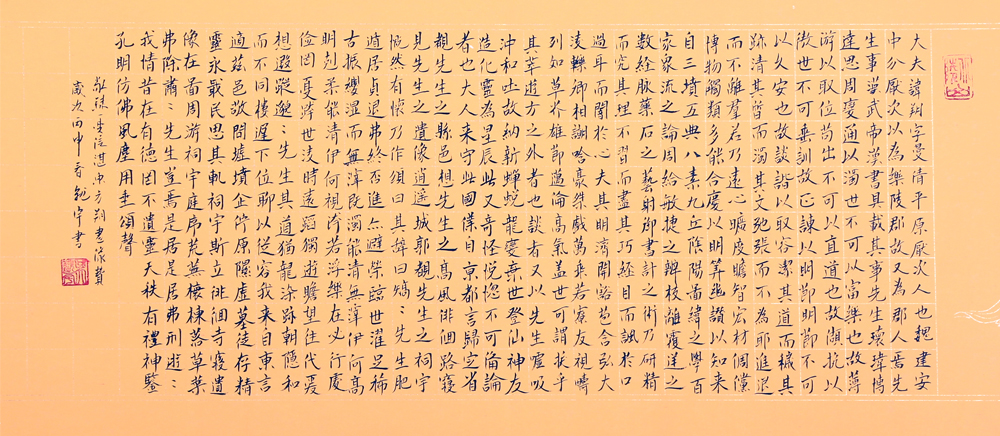 大夫諱朔字曼倩平原厭次人也魏建安
中分厭次以為樂陵郡故又為郡人焉先
生事漢武帝漢書具載其事先生瓌瑋博
達思周變通以濁世不可以富樂也故薄
游以取位苟出不可以直道也故頡抗以
傲世不可垂訓故正諫以明節明節不可
以久安也故談諧以取容潔其道而穢其
跡清其質而濁其文弛張而不為耶進退
而不離群若乃遠心曠度贍智宏材倜儻
博物觸類多能合變以明筭幽讚以知来
自三墳五典八素九丘陰陽圖緯之學百
家眾流之論周給敏捷之辨枝離覆逆之
數經脈藥石之藝射御書計之術乃研精
而究其理不習而盡其巧經目而諷於口
過耳而闇於心夫其明濟開豁苞含弘大
淩轢卿相謿哈豪桀戲萬乘若寮友視疇
列如草芥雄節邁倫高氣蓋世可謂拔乎
其萃遊方之外者也談者又以先生噓吸
沖和吐故納新蟬蛻龍變棄世登仙神友
造化靈為星辰此又奇怪恍惚不可備論
者也大人来守此國僕自京都言歸定省
覩先生之縣邑想先生之高風徘徊路寢
見先生之遺像逍遙城郭覩先生之祠宇
慨然有懷乃作頌曰其辭曰矯:先生肥
遁居貞退弗終否進亦避榮臨世濯足希
古振纓涅而無滓既濁能清無滓伊何高
明剋柔能清伊何視汙若浮樂在必行處
儉罔憂跨世淩時遠蹈獨遊瞻望往代爰
想遐蹤邈:先生其道猶龍染跡朝隱和
而不同棲遲下位聊以從容我来自東言
適茲邑敬問墟墳企佇原隰虛墓徒存精
靈永戢民思其軌祠宇斯立徘徊寺寢遺
像在圖周游祠宇庭序荒蕪棲棟落草萊
弗除肅:先生豈焉是居是居弗刑遊:
我情昔在有德罔不遺靈天秩有禮神鑒
孔明仿佛風塵用垂頌聲
敬錄夏侯湛東方朔畫像贊
歲次丙申春 宇書